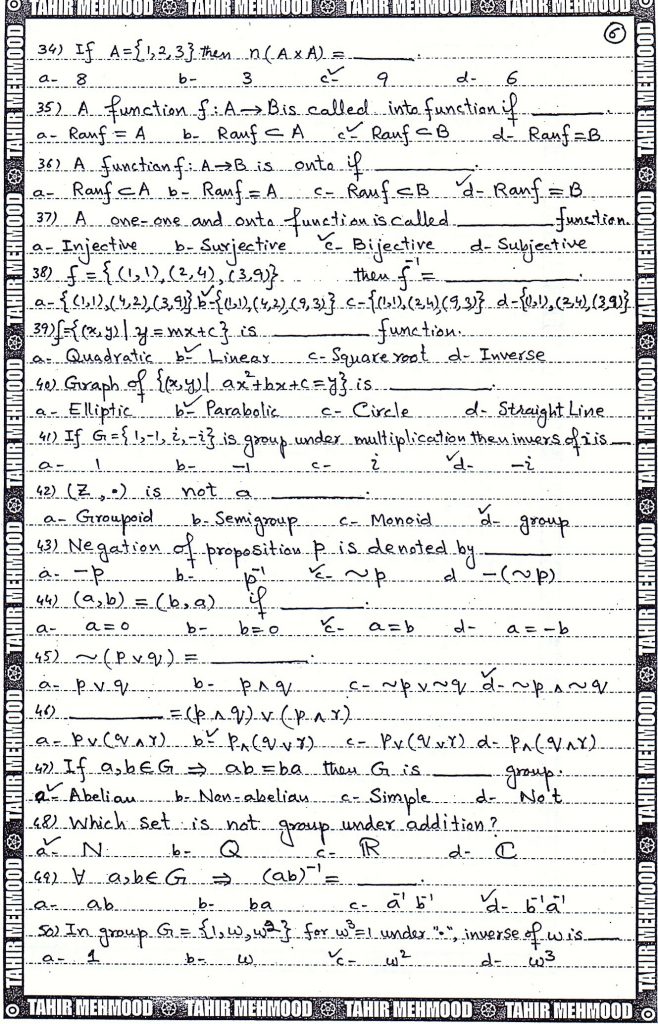 TAHIR MEHMOOD TAHIR MEHMOOD TAHIR MEHMOOD TAHIR MEHMOOD
6
34) If A={1,2,3} then n(A×A) = ______.
a- 8 b- 3 c-✓ 9 d- 6
35) A function f:A→B is called into function if ______
a- Ranf = A b- Ranf ⊂ A c-✓ Ranf ⊂ B d- Ranf = B
36) A function f: A→B is onto if ______.
a- Ranf ⊂ A b- Ranf = A c- Ranf ⊂ B ✓d- Ranf = B
37) A one-one and onto function is called ______ function.
a- Injective b- Surjective ✓c- Bijective d- Subjective
38) f = {(1,1),(2,4),(3,9)} then f⁻¹ = ______.
a-{(1,1),(4,2),(3,9)} b-✓{(1,1),(4,2),(9,3)} c-{(1,1),(2,4)(9,3)} d-{(1,1),(2,4),(3,9)}
39) f={(x,y)| y=mx+c} is ______ function.
a- Quadratic b-✓ Linear c- Square root d- Inverse
40) Graph of {(x,y)| ax²+bx+c=y} is ______.
a- Elliptic b-✓ Parabolic c- Circle d- Straight Line
41) If G={1,-1,i,-i} is group under multiplication then invers of i is ___
a- 1 b- -1 c- i ✓d- -i
42) (Z,•) is not a ______.
a- Groupoid b- Semigroup c- Monoid ✓d- group
43) Negation of proposition p is denoted by ______
a- -p b- p⁻¹ ✓c- ~p d -(~p)
44) (a,b) = (b,a) if ______.
a- a=0 b- b=0 ✓c- a=b d- a=-b
45) ~(p∨q) = ______.
a- p∨q b- p∧q c- ~p∨~q ✓d- ~p∧~q
46) ______ =(p∧q)∨(p∧r)
a- P∨(q∧r) b-✓ P∧(q∨r) c- P∨(q∨r) d- P∧(q∧r)
47) If a,b∈G ⇒ ab=ba then G is ______ group.
a-✓ Abelian b- Non-abelian c- Simple d- Not
48) Which set is not group under addition?
a-✓ N b- Q c- ℝ d- ℂ
49) ∀ a,b∈G ⇒ (ab)⁻¹= ______.
a- ab b- ba c- a⁻¹b⁻¹ ✓d- b⁻¹a⁻¹
50) In group G = {1,ω,ω²} for ω³=1 under "•", inverse of ω is ___
a- 1 b- ω ✓c- ω² d- ω³
TAHIR MEHMOOD TAHIR MEHMOOD TAHIR MEHMOOD TAHIR MEHMOOD